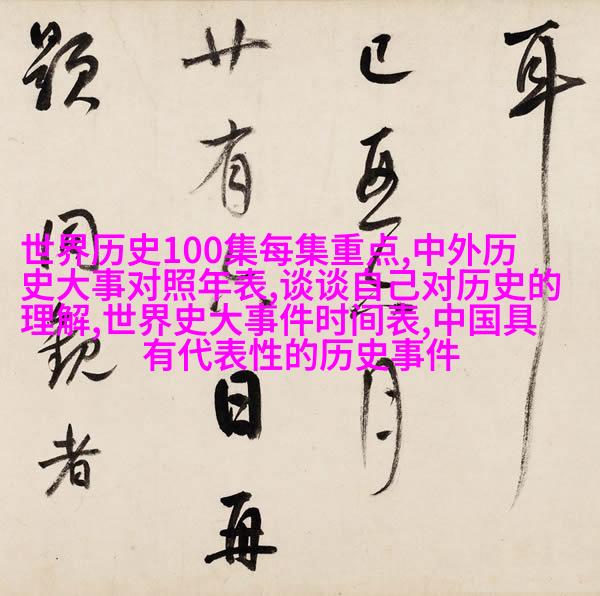 世界历史100集每集重点,中外历
史大事对照年表,谈谈自己对历史的
理解,世界史大事件时间表,中国具
有代表性的历史事件
耳
已亥月
廿有日再
題同觀者